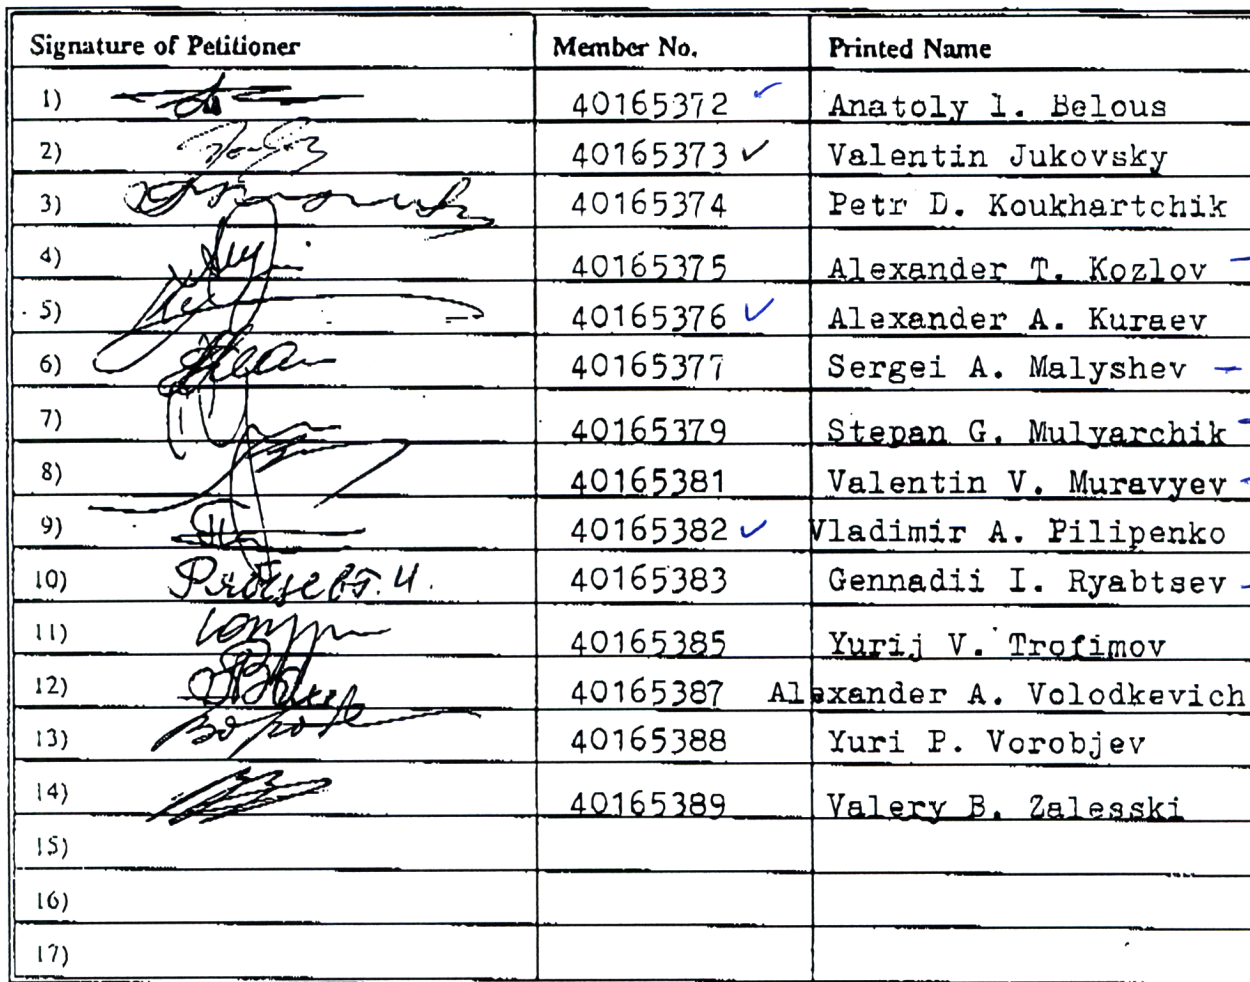 Signature of Petitioner Member No. Printed Name
1) 40165372 ✓ Anatoly l. Belous
2) 40165373 ✓ Valentin Jukovsky
3) 40165374 Petr D. Koukhartchik
4) 40165375 Alexander T. Kozlov –
5) 40165376 ✓ Alexander A. Kuraev
6) 40165377 Sergei A. Malyshev –
7) 40165379 Stepan G. Mulyarchik –
8) 40165381 Valentin V. Muravyev –
9) 40165382 ✓ Vladimir A. Pilipenko
10) 40165383 Gennadii I. Ryabtsev –
11) 40165385 Yurij V. Trofimov
12) 40165387 Alexander A. Volodkevich
13) 40165388 Yuri P. Vorobjev
14) 40165389 Valery B. Zalesski
15)
16)
17)